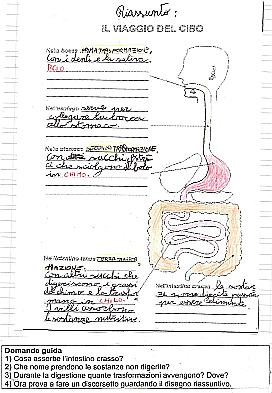 Riassunto:
IL VIAGGIO DEL CIBO
Nella bocca PRIMA TRASFORMAZIONE,
con i denti e la saliva
BOLO.
Nell'esofago serve per
collegare la bocca
allo stomaco.
Nello stomaco SECONDA TRASFORMAZIONE,
Con dei succhi
ci che sciolgono il bolo
in CHIMO.
Nell'intestino tenue TERZA TRASFOR
MAZIONE.
Con altri succhi che
digeriscono i grassi
del chimo e lo trasfor
mano in CHILO.
I villi assorbono
le sostanze nutritive.
Nell'intestino crasso le sostan
ze non digerite
per essere eliminate.
Domande guida
1) Cosa assorbe l'intestino crasso?
2) Che nome prendono le sostanze non digerite?
3) Durante la digestione quante trasformazioni avvengono? Dove?
4) Ora prova a fare un discorsetto guardando il disegno riassuntivo.